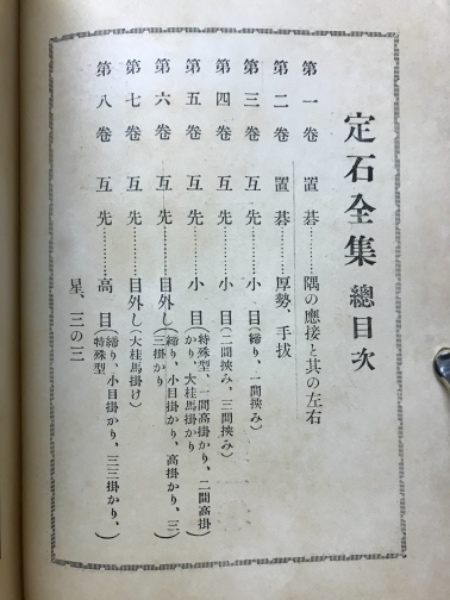 定石全集 總目次
第一卷 置碁………隅の應接と其の左右
第二卷 置碁………厚勢、手拔
第三卷 互先………小目(締り、一間挾み)
第四卷 互先………小目(二間挾み、三間挾み)
第五卷 互先………小目(特殊型、一間高掛かり、二間高掛かり、大桂馬掛かり)
第六卷 互先………目外し(締り、小目掛かり、高掛かり、三三掛かり)
第七卷 互先………目外し(大桂馬掛け)
第八卷 互先………高目(締り、小目掛かり、三三掛かり、特殊型)
星、三の三